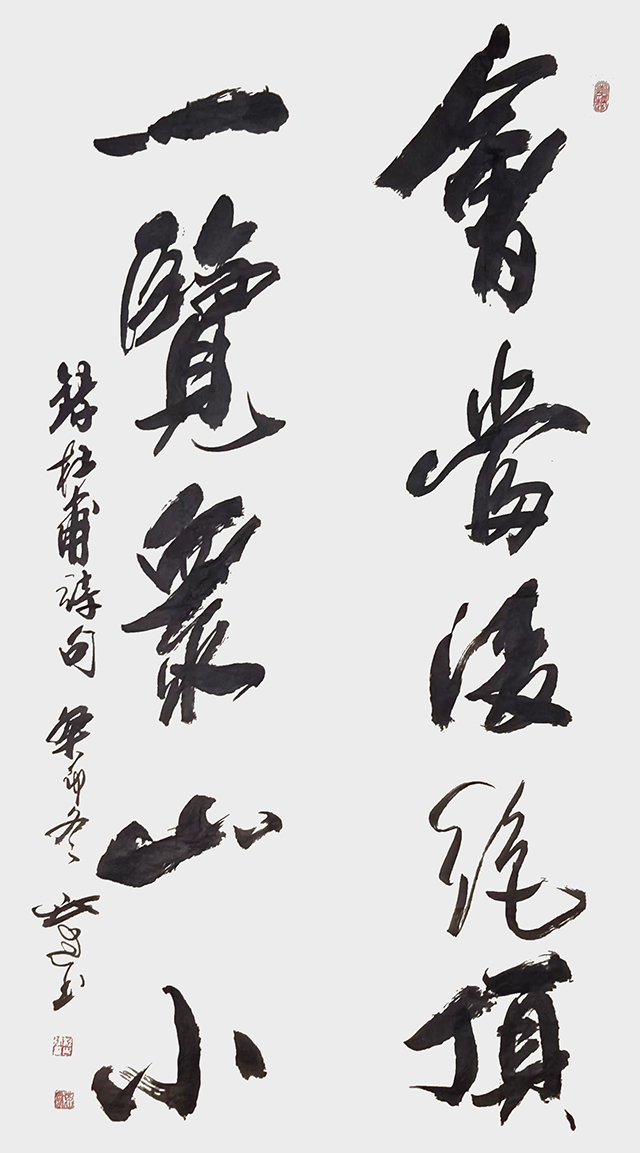 會當凌絕頂
一覽眾山小
錄杜甫詩句 癸卯冬